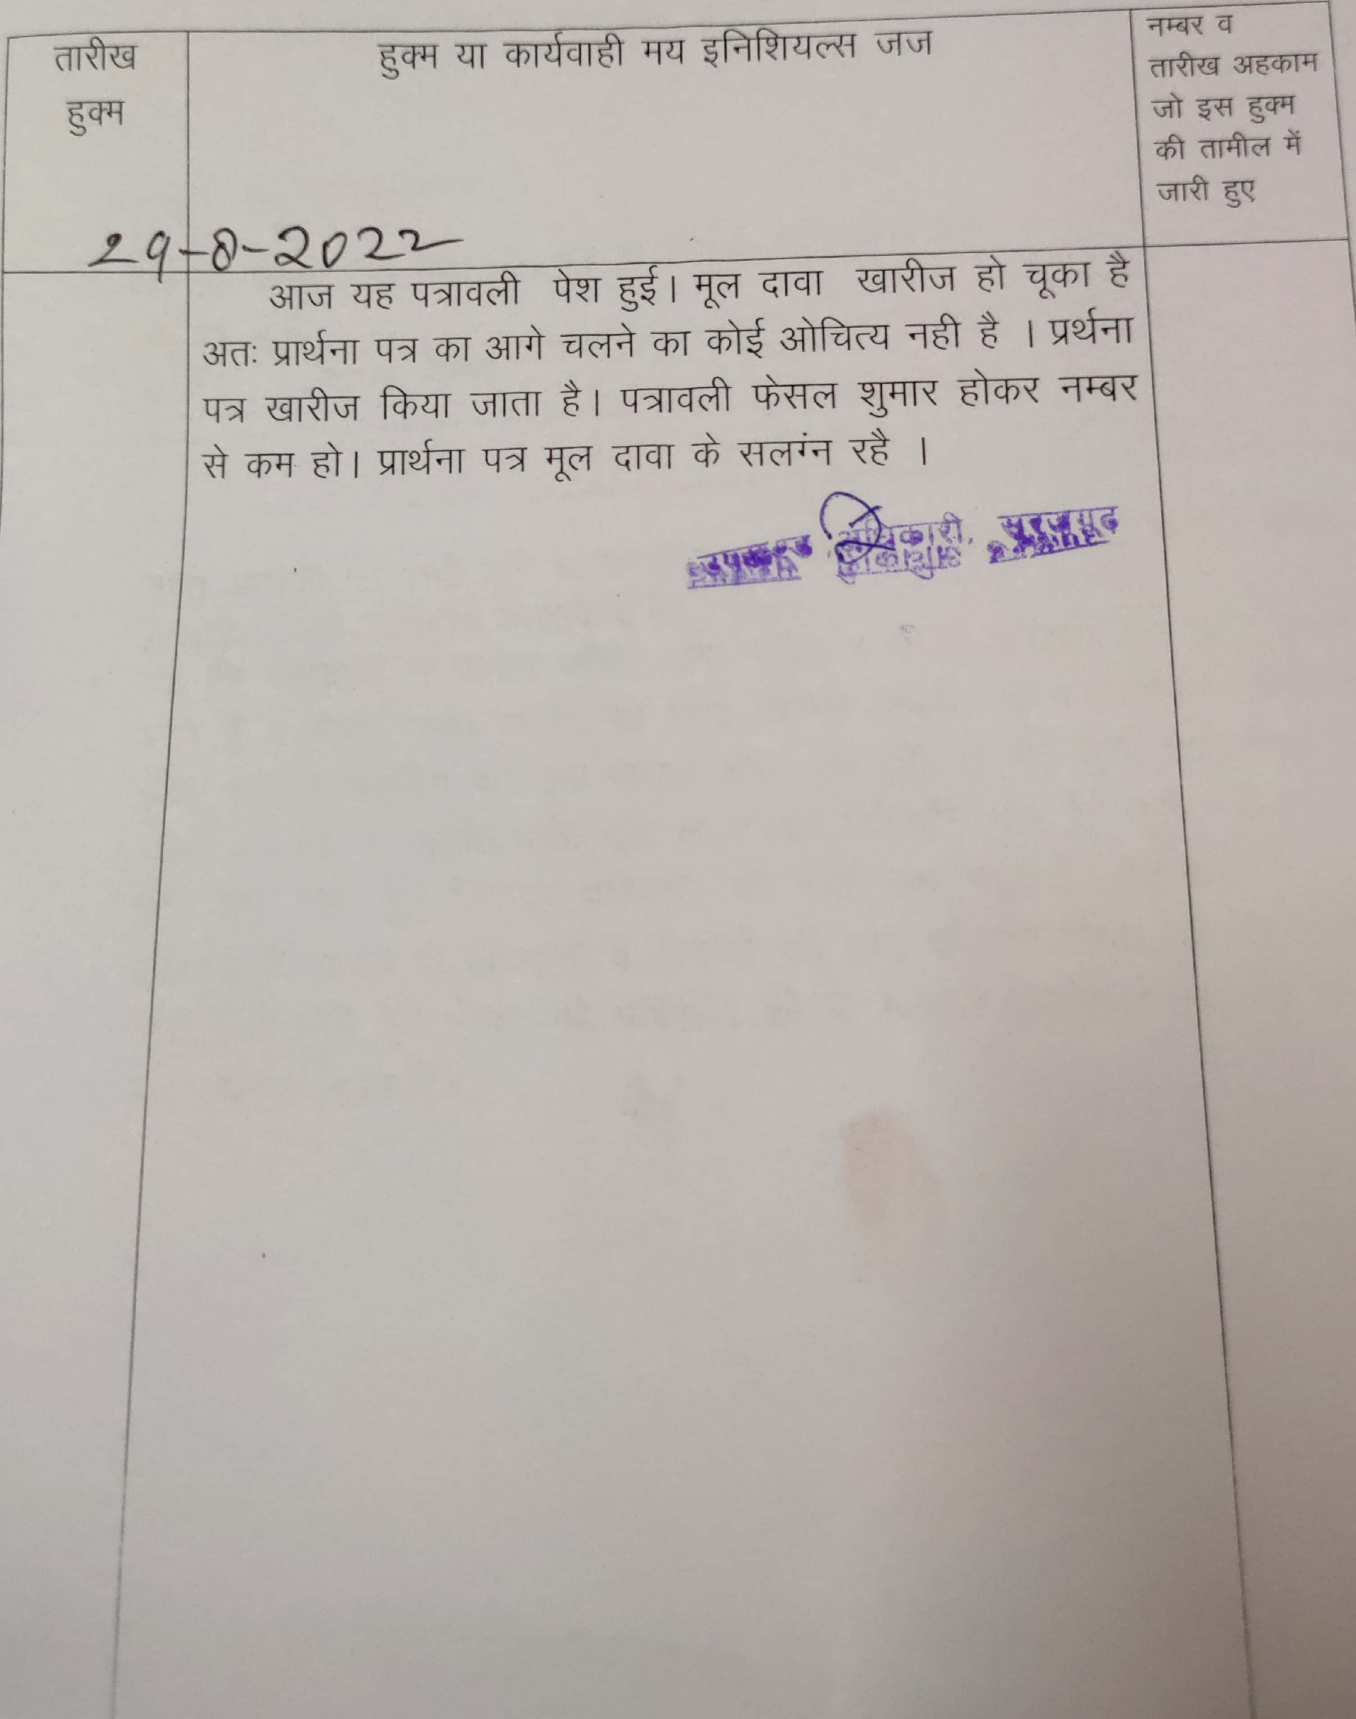 तारीख
हुक्म
हुक्म या कार्यवाही मय इनिशियल्स जज
नम्बर व
तारीख अहकाम
जो इस हुक्म
की तामील में
जारी हुए
29-8-2022
आज यह पत्रावली पेश हुई। मूल दावा खारीज हो चूका है
अतः प्रार्थना पत्र का आगे चलने का कोई ओचित्य नही है । प्रर्थना
पत्र खारीज किया जाता है। पत्रावली फेसल शुमार होकर नम्बर
से कम हो। प्रार्थना पत्र मूल दावा के सलग्ंन रहै ।
उपखण्ड अधिकारी, सूरजगढ